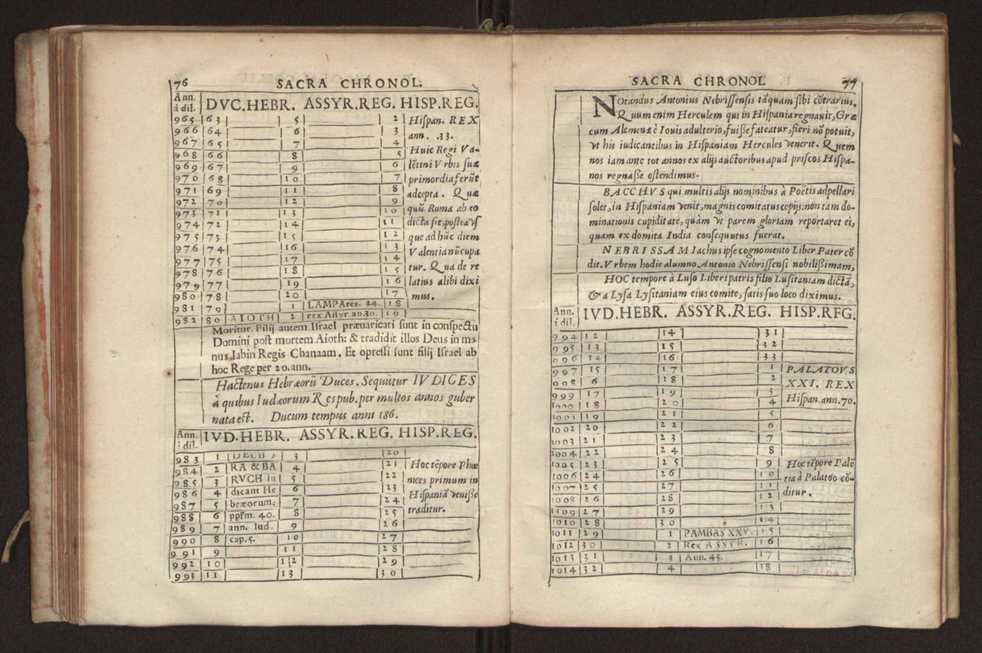 76 SACRA CHRONOL.
Ann. à dil. DVC.HEBR. ASSYR.REG. HISP.REG.
965 63 5 2 Hispan. REX
966 64 6 3 ann. 33.
967 65 7 4 Huic Regi Va-
968 66 8 5
969 67 9 6 lẽtini Vrbis suæ
970 68 10 7 primordia ferũt
971 69 11 8 adepta. Quæ
972 70 12 9
973 71 13 10 quũ Roma ab eo
974 72 14 11 dicta sit, postea vs
975 73 15 12 que ad hũc diem
976 74 16 13 Valentia nũcupa
977 75 17 14
978 76 18 15 tur. Qua de re
979 77 19 16 latius alibi dixi
980 78 20 17 mus.
981 79 1 LAMPAres. 24. 18
982 80 AIOTH 2 rex Assyr. an.30. 19
Moritur. Filij autem Israel præuaricati sunt in conspectu
Domini post mortem Aioth: & tradidit illos Deus in ma
nus Iabin Regis Chanaam. Et opressi sunt filij Israel ab
hoc Rege per 20. ann.
Hactenus Hebræorũ Duces. Sequitur IVDICES
à quibus Iudæorum Respub. per multos annos guber
nata est. Ducum tempus anni 186.
Ann. à dil. IVD.HEBR. ASSYR.REG. HISP.REG.
983 1 DEEB 3 20
984 2 RA & BA 4 21 Hoc tẽpore Phœ
985 3 RVCH Iu 5 22 nices primum in
986 4 dicant He 6 23 Hispaniã venisse
987 5 bræorum; 7 24 traditur.
988 6 ppr̃m. 40. 8 25
989 7 ann. Iud. 9 26
990 8 cap.5. 10 27
991 9 11 28
992 10 12 29
993 11 13 30
SACRA CHRONOL. 77
Notandus Antonius Nebrissensis tãquam sibi cõtrarius.
Quum enim Herculem qui in Hispania regnauit, Græ
cum Alcmenæ è Iouis adulterio, fuisse fateatur, fieri nõ potuit,
vt his iudicantibus in Hispaniam Hercules venerit. Quem
nos iam ante tot annos ex alijs auctoribus apud priscos Hispa-
nos regnasse ostendimus.
BACCHVS qui multis alijs nominibus à Poetis adpellari
solet, in Hispaniam venit, magnis comitatus copijs: non tam do-
minationis cupiditate, quàm vt parem gloriam reportaret ei,
quam ex domita India consequutus fuerat.
NEBRISSAM Iachus ipse cognomento Liber Pater cõ
dit. Vrbem hodie alumno Antonio Nebrissensi nobilissimam.
HOC tempore à Luso Liberi patris filio Lusitaniam dictã,
& à Lysa Lysitaniam eius comite, satis suo loco diximus.
Ann. à dil. IVD.HEBR. ASSYR.REG. HISP.REG.
994 12 14 31
995 13 15 32
996 14 16 33
997 15 17 1 PALATOVS
998 6 18 2 XXI. REX
999 17 19 3 Hispan. ann.70.
1000 18 20 4
1001 19 21 5
1002 20 22 6
1003 21 23 7
1004 22 24 8
1005 23 25 9 Hoc tẽpore Palẽ
1006 24 26 10 tia à Palatoo cõ-
1007 25 27 11 ditur.
1008 26 28 12
1009 27 29 13
1010 28 30 14
1011 29 1 PAMBAS XXV. 15
1012 30 2 Rex ASSYR. 16
1013 31 3 Ann. 45. 17
1014 32 4 18